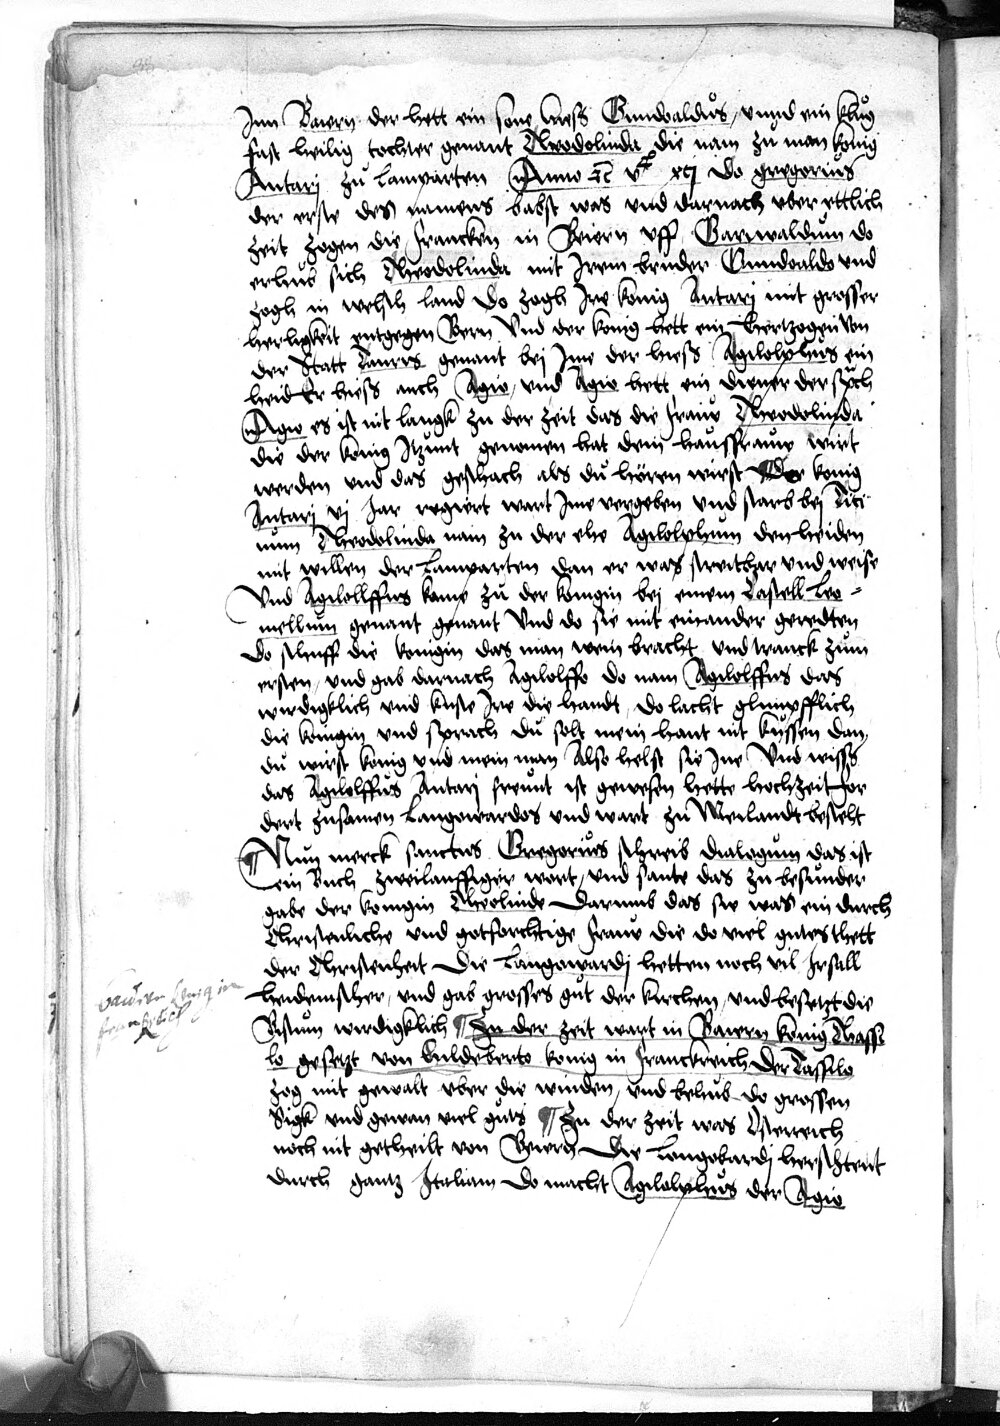 Jnn Baiern der hett ein sone hies Gundoaldus / unnd ein klug
fast heilig tochter genant Theodolinda die nam zu man konig
Antarj zu lamparten Anno &c vc xcj do gregorius
der erste des namens babst was und darnach uber ettlich
zeit zogen die francken in Beiern uff Gariwaldum do
erhub sich Theodolinda mit Jrem bruder Gundoaldo und
zogh in welsch land do zogh Jre konig Antarj mit grosser
herligkeit entgegen Bern Und der konig hett ein hertzogen von
der statt Taurrs genant bej Jme der hiess Agilolphus ein
heid Er hiess auch Agio / und Agio hett ein diener der sprach
Agio es ist nit langk zu der zeit das die fraw Theodolinda
die der konig Jtzunt genomen hat dein haussfrauw wirt
werden und das geschach als du hören wirst ¶ Der konig
Antarj vj Jar regiert wart Jme vergeben und starb bej Tici
num Theodolinda nam zu der ehe Agilolphum den heiden
mit willen der lamparten dan er was streitbar und weise
Und Agilollffus kame zu der konigin bej einem Castell Leo =
mellum genant genant Und do sie mit einander geredten
do schuff die konigin das man wein bracht und tranck zum
ersten / und gab darnach Agilolffo do nam Agilolffus das
wirdigklich und kuste Jre die handt / do lacht glimpfflich
die konigin und sprach du solt mein hant nit küssen dan
du wirst konig und mein man Also helst sie Jne Und wisss
das Agilolffus Antarj freunt ist gewesen hette hochzeit for
dert zusamen Langowardos und wart zu Meilandt bestelt
¶ Nun merck sanctus Gregorius schreib dialogum das ist
ein Buch zweilauffiger wort / und sante das zu besunder
gabe der konigin Theolinde Darumb das sie was ein durch
Christenliche und gotforchtige fraw die do viel gutes thett
der Christenheit Die Langowardj hetten noch vil Jrsall
heidenischer / und gab grosses gut der kirchen / und besetzt die
Bistum wirdigklich ¶ Zu der zeit wart in Baiern konig Thassi
lo gesetzt von Culdeberto konig in franckreich Der Tassilo
zog mit gewalt uber die winden / und behub do grossen
Sigk und gewan viel guts ¶ Zu der zeit was Osterreich
noch nit getheilt von Beiern Die Longobardj herschtent
durch gantz Jtaliam Do macht Agilolphus der Agio
konig in
franckrich